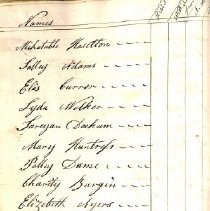 Names
Mehetable Haselton
Salley Adams
Elcs Currer
Lyda Molker
Sareyan Dackum
Mary Huntress
Polley Dame
Charity Burgin
Elizebeth Ayers